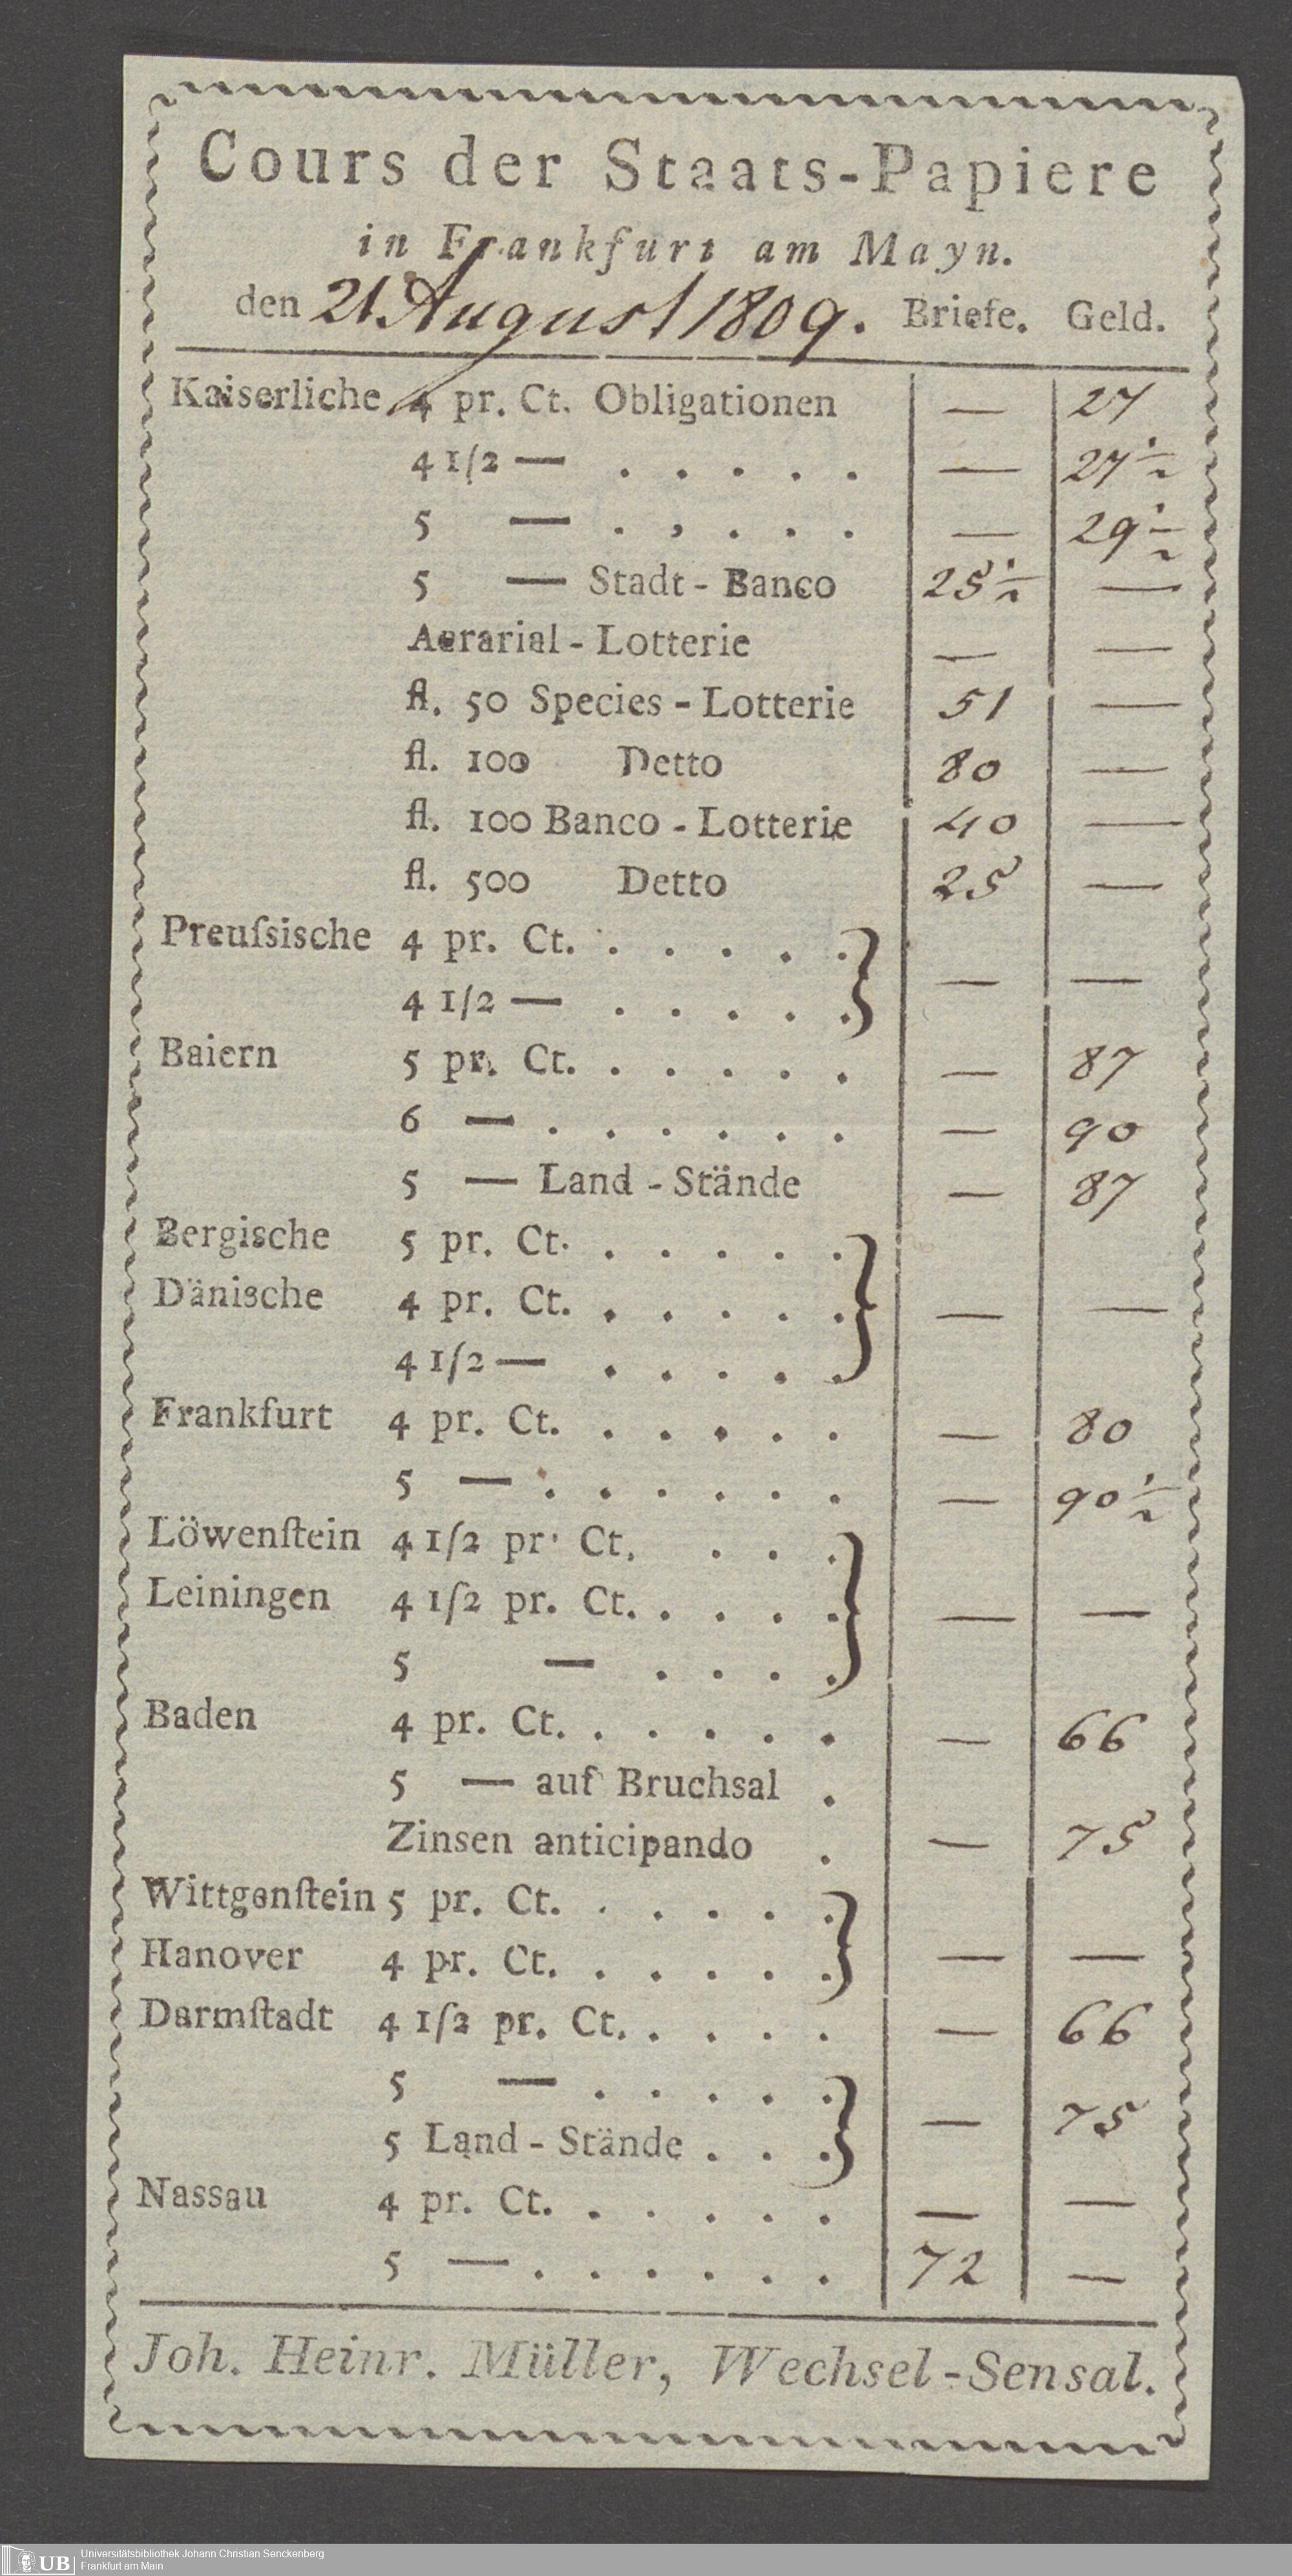 Cours der Staats-Papiere
in Frankfurt am Mayn.
den 21. August 1809. Briefe. Geld.
Kaiserliche 4 pr. Ct. Obligationen — 27
4 1/2 — . . . . . — 27 1/2
5 — . , . . . — 29 1/2
5 — Stadt-Banco 25 1/2 —
Aerarial-Lotterie — —
fl. 50 Species-Lotterie 51 —
fl. 100 Detto 80 —
fl. 100 Banco-Lotterie 40 —
fl. 500 Detto 25 —
Preuſsische 4 pr. Ct. . . . . .
4 1/2 — . . . . . — —
Baiern 5 pr. Ct. . . . . . — 87
6 — . . . . . . — 90
5 — Land-Stände — 87
Bergische 5 pr. Ct. . . . . .
Dänische 4 pr. Ct. . . . . . — —
4 1/2 — . . . . .
Frankfurt 4 pr. Ct. . . . . . — 80
5 — . . . . . . — 90 1/2
Löwenſtein 4 1/2 pr. Ct. . . .
Leiningen 4 1/2 pr. Ct. . . . . — —
5 — . . . .
Baden 4 pr. Ct. . . . . . — 66
5 — auf Bruchsal .
Zinsen anticipando . — 75
Wittgenſtein 5 pr. Ct. . . . . .
Hanover 4 pr. Ct. . . . . . — —
Darmſtadt 4 1/2 pr. Ct. . . . . — 66
5 — . . . . .
5 Land-Stände . . . — 75
Nassau 4 pr. Ct. . . . . . — —
5 — . . . . . . 72 —
Joh. Heinr. Müller, Wechsel-Sensal.
UB Universitätsbibliothek Johann Christian Senckenberg
Frankfurt am Main